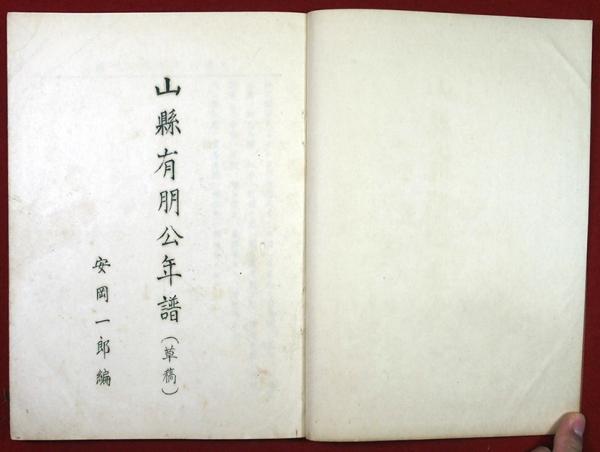 山縣有朋公年譜(草稿)
安岡一郎編